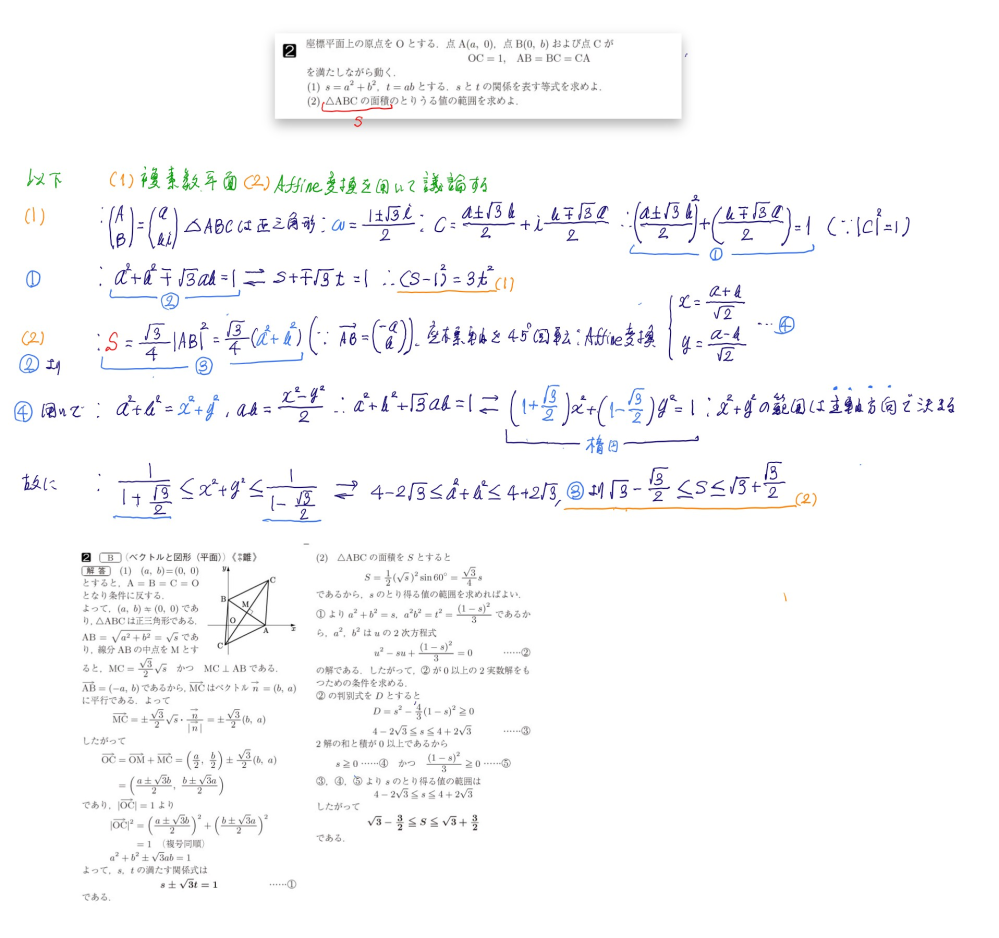 2 座標平面上の原点を O とする．点 A(a, 0)，点 B(0, b) および点 C が
OC = 1, AB = BC = CA
を満たしながら動く．
(1) s = a² + b², t = ab とする．s と t の関係を表す等式を求めよ．
(2) △ABC の面積のとりうる値の範囲を求めよ．
S
以下 (1) 複素数平面 (2) Affine変換を用いて議論する
(1) : (A B) = (a bi) △ABCは正三角形 : ω = (1±√3i)/2 : C = (a±√3b)/2 + i(b∓√3a)/2 ∴ ((a±√3b)/2)² + ((b∓√3a)/2)² = 1 (∵|C|²=1)
①
① : a²+b²∓√3ab=1 ⇄ S+∓√3t=1 ∴ (S-1)²=3t² (1)
②
(2) : S = √3/4 |AB|² = √3/4 (a²+b²) (∵ AB = (-a b)). 座標軸を45°回転 : Affine変換 { x = (a+b)/√2 y = (a-b)/√2 … ④
② より
③
④ 用いて : a²+b²=x²+y², ab=(x²-y²)/2 ∴ a²+b²+√3ab=1 ⇄ (1+√3/2)x²+(1-√3/2)y²=1 : x²+y²の範囲は主軸方向で決まる
楕円
故に : 1/(1+√3/2) ≤ x²+y² ≤ 1/(1-√3/2) ⇄ 4-2√3 ≤ a²+b² ≤ 4+2√3, ③より √3-√3/2 ≤ S ≤ √3+√3/2 (2)
2 B (ベクトルと図形（平面）)
解答 (1) (a, b)=(0, 0)
とすると，A = B = C = O
となり条件に反する．
よって，(a, b) ≒ (0, 0) であ
り，△ABC は正三角形である．
AB = √(a² + b²) = √s であ
り，線分 AB の中点を M とす
ると，MC = √3/2 √s かつ MC ⊥ AB である．
AB = (−a, b) であるから，MC はベクトル n = (b, a)
に平行である．よって
MC = ± √3/2 √s · n/|n| = ± √3/2 (b, a)
したがって
OC = OM + MC = (a/2, b/2) ± √3/2 (b, a)
= ((a ± √3b)/2, (b ± √3a)/2)
であり，|OC| = 1 より
|OC|² = ((a ± √3b)/2)² + ((b ± √3a)/2)²
= 1 （複号同順）
a² + b² ± √3ab = 1
よって，s, t の満たす関係式は
s ± √3t = 1 ……①
である．
y
C
B
M
O
A
x
C
(2) △ABC の面積を S とすると
S = 1/2 (√s)² sin 60° = √3/4 s
であるから，s のとり得る値の範囲を求めればよい．
① より a² + b² = s, a²b² = t² = (1 − s)²/3 であるか
ら，a², b² は u の 2 次方程式
u² − su + (1 − s)²/3 = 0 ……②
の解である．したがって，② が 0 以上の 2 実数解をも
つための条件を求める．
② の判別式を D とすると
D = s² − 4/3 (1 − s)² ≧ 0
4 − 2√3 ≦ s ≦ 4 + 2√3 ……③
2 解の和と積が 0 以上であるから
s ≧ 0 ……④ かつ (1 − s)²/3 ≧ 0 ……⑤
③，④，⑤ より s のとり得る値の範囲は
4 − 2√3 ≦ s ≦ 4 + 2√3
したがって
√3 − 3/2 ≦ S ≦ √3 + 3/2
である．